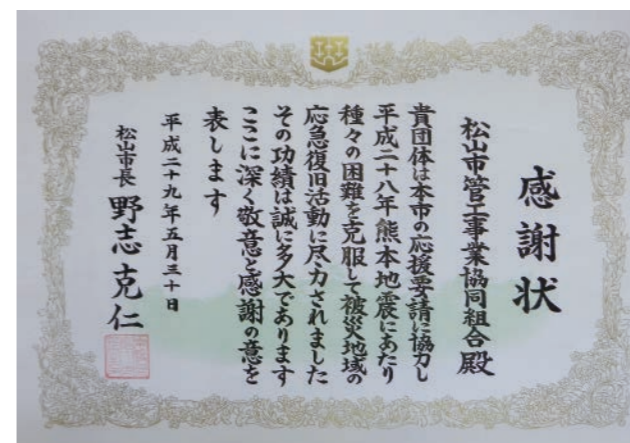 感謝状
松山市管工事業協同組合殿
貴団体は本市の応援要請に協力し
平成二十八年熊本地震にあたり
種々の困難を克服して被災地域の
応急復旧活動に尽力されました
その功績は誠に多大であります
ここに深く敬意と感謝の意を
表します
平成二十九年五月三十日
松山市長 野志克仁